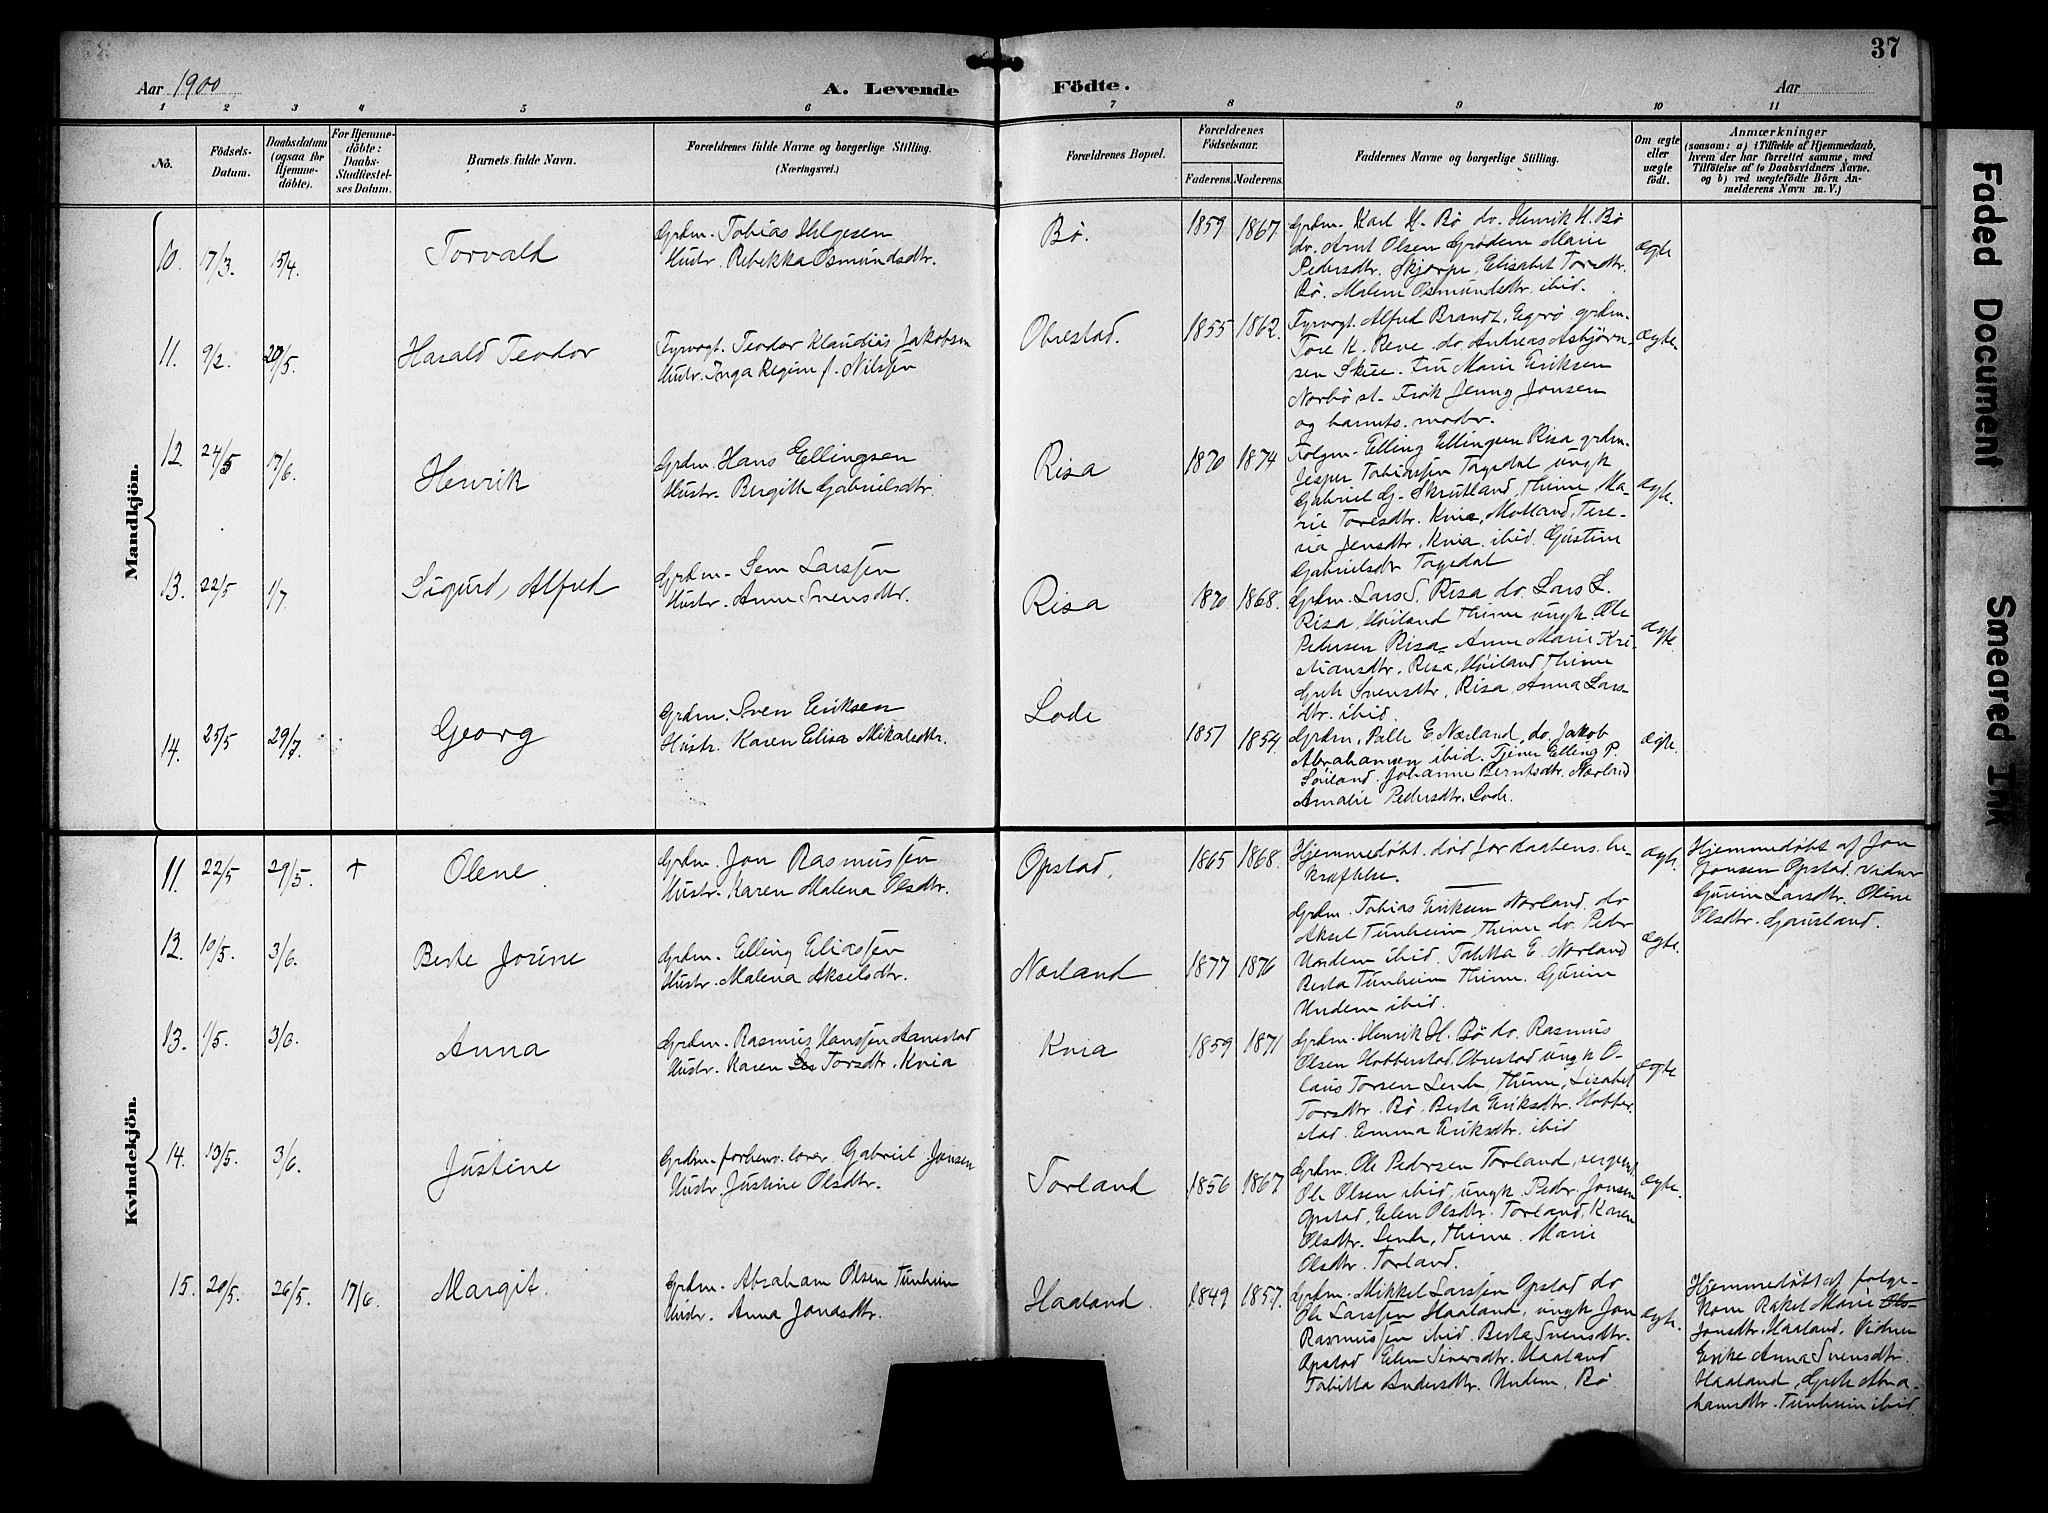 37
Aar 1900
A. Levende Födte.
Aar
1 2 3 4 5 6 7 8 9 10 11
No.
Födsels-
Datum.
Daabsdatum
(ogsaa for
Hjemme-
döbte).
For Hjemme-
döbte:
Daabs-
Stadfæstel-
ses Datum.
Barnets fulde Navn.
Forældrenes fulde Navne og borgerlige Stilling.
(Næringsvei.)
Forældrenes Bopæl.
Forældrenes
Födselsaar.
Faderens. Moderens.
Faddernes Navne og borgerlige Stilling.
Om ægte
eller
uægte
födt.
Anmærkninger
(saasom: a) i Tilfælde af Hjemmedaab,
hvem der har forrettet samme, med
Tilföielse af to Daabsvidners Navne.
og b) ved uægtefödte Börn An-
melderens Navn m. V.)
Mandkjön.
10. 17/3. 15/4. Torvald
Grdm. Tobias Helgesen
Hustr. Rebekka Osmundsdtr.
Bø. 1859 1867.
Grdm. Karl H. Bø do. Henrik H. Bø
do. Arnt Olsen Grødem Marie
Pedersdtr. Skjorpe, Elisabet Torsdtr.
Bø. Malene Osmundsdtr ibid.
ægte
11. 9/2. 20/5. Harald Teodor
Fyrvogt. Teodor Klaudius Jakobsen
Hustr. Inga Regine f. Nilssen
Obrestad. 1855 1862.
Fyrvogt. Alfred Brandt, Egerø grdm.
Tore K. Reve do. Andreas Asbjørn-
sen Skeie. Fru Marie Eriksen
Nærbø st. Frøk Jenny Jonsen
og barnets moder.
ægte.
12. 24/5 17/6. Henrik
Grdm. Hans Ellingsen
Hustr. Birgitte Gabrielsdtr.
Risa 1870 1874
Folgm. Elling Ellingsen Risa grdm.
Jesper Tobiassen Togsdal ungk
Gabriel G. Skrutland, Thime, Ma-
rie Toresdtr. Kvia, Motland, Tere-
sia Jensdtr. Kvia. ibid. Gustine
Gabrielsdtr Togsdal
ægte.
13. 22/5 1/7. Sigurd, Alfred
Grdm. Sem Larssen
Hustr. Anne Svensdtr.
Risa 1870 1868.
Grdm. Lars S. Risa do. Lars L.
Risa, Høiland Thime ungk. Ole
Pedersen Risa. Anne Marie Kri-
stiansdtr. Risa, Høiland Thime
Grete Svensdtr, Risa, Anna Lars-
dtr. ibid.
ægte.
14. 25/5 29/7. Georg
Grdm. Sven Eriksen
Hustr. Karen Elisa Mikalsdtr.
Lode 1857 1854.
Grdm. Palle E. Nærland, do. Jakob
Abrahamsen ibid. Tjener Elling P.
Søiland. Johanne Berntsdtr. Nærland
Amalie Pedersdtr. Lode.
ægte.
Kvindekjön.
11. 22/5 29/5. + Olene
Grdm. Jon Rasmussen
Hustr. Karen Malena Olsdtr.
Opstad. 1865 1868.
Hjemmedøbt. død før daabens be-
kræftelse.
ægte.
Hjemmedøbt af Jon
Jonsen Opstad. vidner
Gurine Larsdtr. Oline
Olsdtr. Gausland.
12. 10/5. 3/6. Berte Jorine
Grdm. Elling Eliassen
Hustr. Malena Akselsdtr.
Nærland 1877 1876
Grdm. Tobias Eriksen Nærland. do
Aksel Tunheim, Thime do. Peder
Undem ibid. Tabitta E. Nærland
Berta Tunheim Thime. Gurine
Undem ibid.
ægte.
13. 1/5. 3/6. Anna
Grdm. Rasmus Hanssen Aanestad
Hustr. Karen Torsdtr. Kvia
Kvia 1859 1871
Grdm. Henrik H. Bø do. Rasmus
Olsen Hobberstad. Obrestad ungk O-
laus Torsen Lende, Thime, Lisabet
Torsdtr. Bø. Berta Eriksdtr. Hobber-
stad. Emma Eriksdtr. ibid
ægte
14. 13/5. 3/6. Justine
Grdm. forhenv. lærer. Gabriel Jonsen
Hustr. Justine Olsdtr.
Torland 1856 1867
Grdm. Ole Pedersen Torland, sergent
Ole Olsen ibid, ungk Peder Jonsen
Opstad, Elen Olsdtr. Torland, Karen
Olsdtr. Lende, Thime. Marie
Olsdtr. Torland.
ægte.
15. 20/5. 26/5. 17/6. Margit.
Grdm. Abraham Olsen Tunheim
Hustr. Anna Jonasdtr.
Haaland. 1849 1857.
Grdm. Mikkel Larssen Opstad do
Ole Larssen Haaland, ungk Jon
Rasmussen ibid. Berta Svensdtr.
Opstad Elen Siversdtr. Haaland
Tabitta Andersdtr. Undem, Bø
ægte.
Hjemmedøbt af folge-
kone Rakel Marie Ols-
Jonsdtr. Haaland. Vidner
Enke Anna Svensdtr.
Haaland, Grete Abra-
hamsdtr. Tunheim ibid.
Faded Document
Smeared Ink